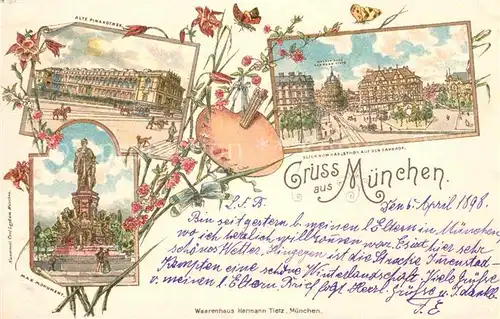 ALTE PINAKOTHEK.
WAARENHAUS
HERMANN TIETZ
BLICK VOM KARLSTHOR AUF DEN BAHNHOF.
Gruss
aus München.
MAX-MONUMENT.
L. F. B.
Den 6. April 1898.
Bin seit gestern b. meinen l. Eltern in München
wo ich herzlich willkommen war. Es ist hier sehr
schönes Wetter. Hingegen ist die Strecke Immenstadt-
Kempten eine schöne Winterlandschaft. Viele Grüße
v. meinen l. Eltern. Brief folgt. Herzl. Grüße u.
T. E.
Waarenhaus Hermann Tietz, München.